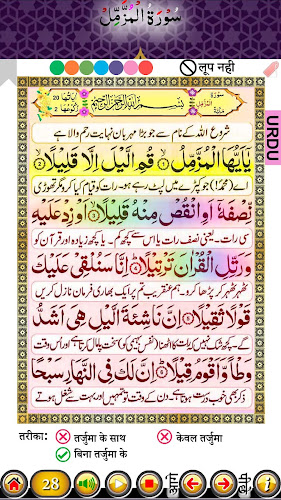 سُورَةُ الْمُزَّمِّل
लूप नही
URDU
بِسْمِ اللهِ الرَّحْمٰنِ الرَّحِيْمِ
شروع اللہ کے نام سے جو بڑا مہربان نہایت رحم والا ہے
يٰٓاَيُّهَا الْمُزَّمِّلُ ۙ۝۱ قُمِ الَّيْلَ اِلَّا قَلِيْلًا ۙ۝۲
اے (محمدؐ) جو کپڑے میں لپٹ رہے ہو۔ رات کو قیام کیا کرو مگر تھوڑی
نِّصْفَهٗٓ اَوِ انْقُصْ مِنْهُ قَلِيْلًا ۙ۝۳ اَوْ زِدْ عَلَيْهِ
سی رات۔ یعنی نصف رات یا اس سے کچھ کم۔ یا کچھ زیادہ اور قرآن کو
وَرَتِّلِ الْقُرْاٰنَ تَرْتِيْلًا ؕ۝۴ اِنَّا سَنُلْقِيْ عَلَيْكَ
ٹھہر ٹھہر کر پڑھا کرو۔ ہم عنقریب تم پر ایک بھاری فرمان نازل کریں
قَوْلًا ثَقِيْلًا ۝۵ اِنَّ نَاشِئَةَ الَّيْلِ هِيَ اَشَدُّ
گے۔ کچھ شک نہیں کہ رات کا اٹھنا (نفس بہیمی کو) سخت پامال کرتا ہے اور اس وقت
وَطْاً وَّاَقْوَمُ قِيْلًا ؕ۝۶ اِنَّ لَكَ فِي النَّهَارِ سَبْحًا
ذکر بھی خوب درست ہوتا ہے۔ دن کے وقت تو تمہیں اور بہت سے شغل ہوتے
तरीका: तर्जुमा के साथ केवल तर्जुमा
बिना तर्जुमा के
28